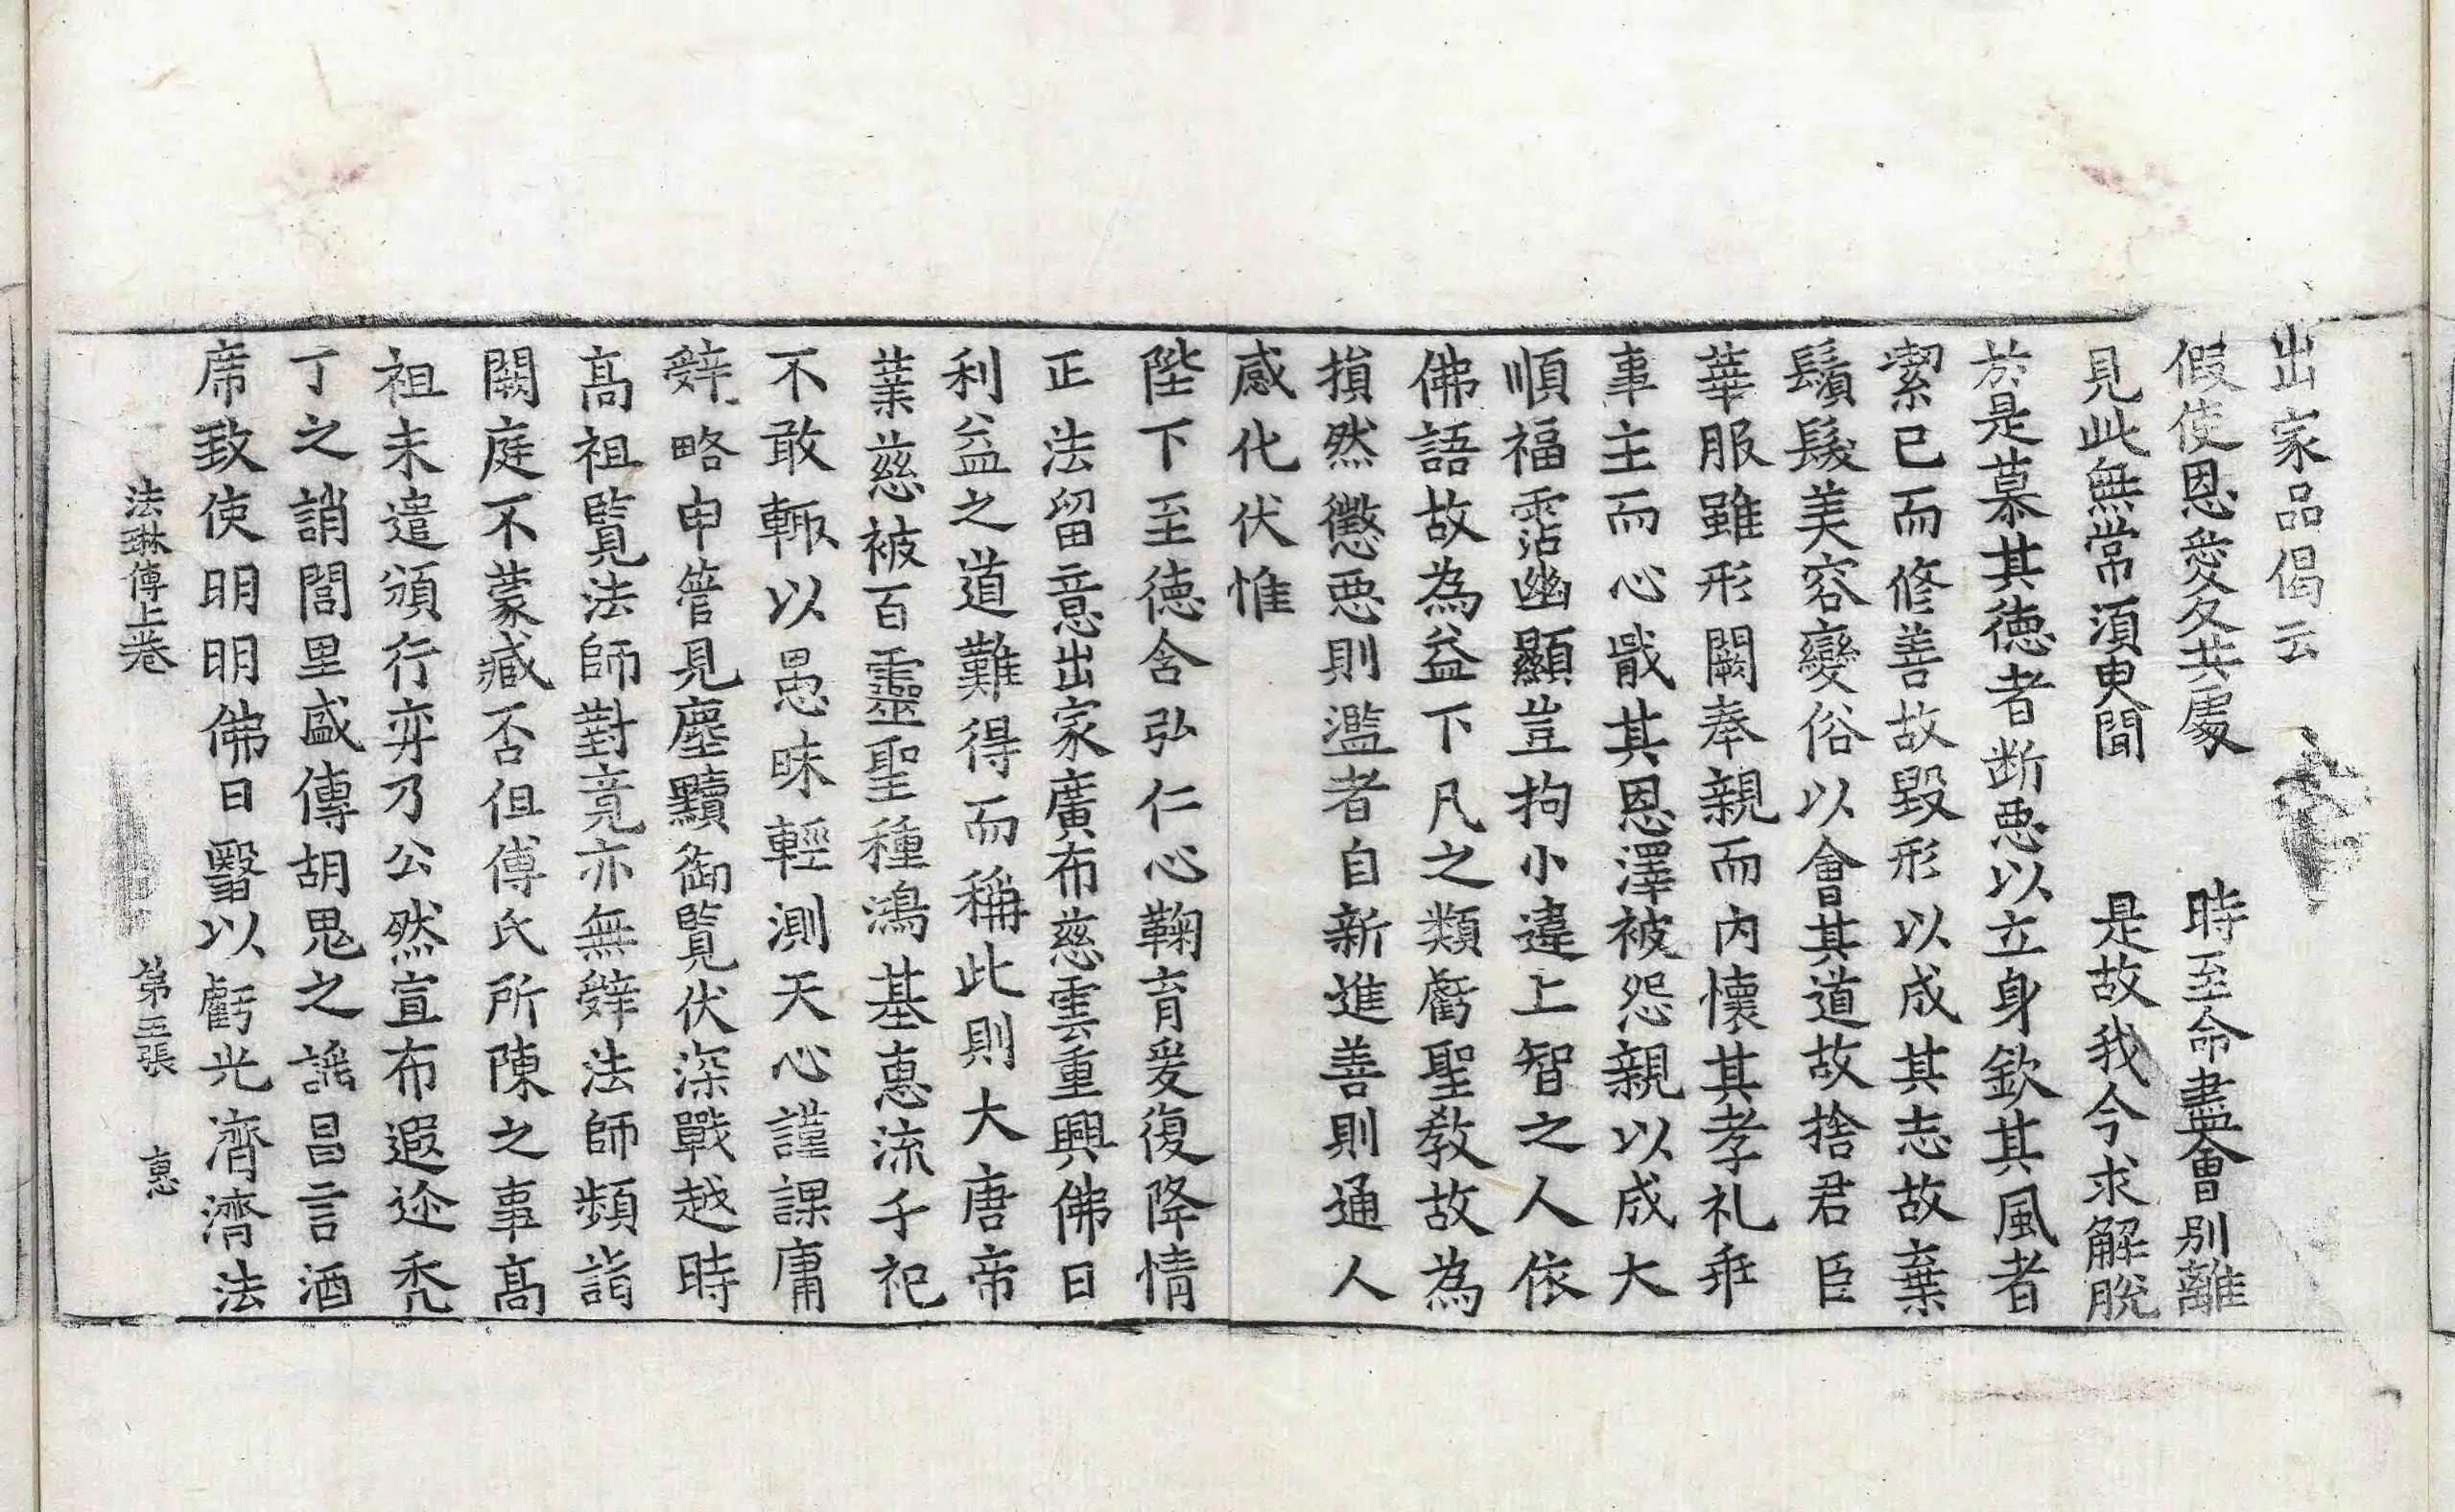 出家品偈云
假使恩愛久共處　時至命盡會別離
見此無常須臾間　是故我今求解脫
於是慕其德者断惡以立身欽其風者
潔已而修善故毀形以成其志故棄
鬚髮美容變俗以會其道故捨君臣
華服雖形闕奉親而內懷其孝礼乖
事主而心戢其恩澤被怨親以成大
順福霑幽顯豈拘小違上智之人依
佛語故為益下凡之類虧聖教故為
損然懲惡則濫者自新進善則通人
感化伏惟
陛下至德含弘仁心鞠育爰復降情
正法留意出家廣布慈雲重興佛日
利益之道難得而稱此則大唐帝
業慈被百靈聖種鴻基惠流千祀
不敢輙以愚昧輕測天心謹課庸
辤略申管見塵黷御覽伏深戰越時
高祖覧法師對竟亦無辤法師頻詣
闕庭不蒙臧否但傅氏所陳之事高
祖未遣頒行弈乃公然宣布遐迩禿
丁之誚閭里盛傳胡鬼之謠昌言酒
席致使明明佛日翳以虧光濟濟法
法琳傳上卷　第五張　惠